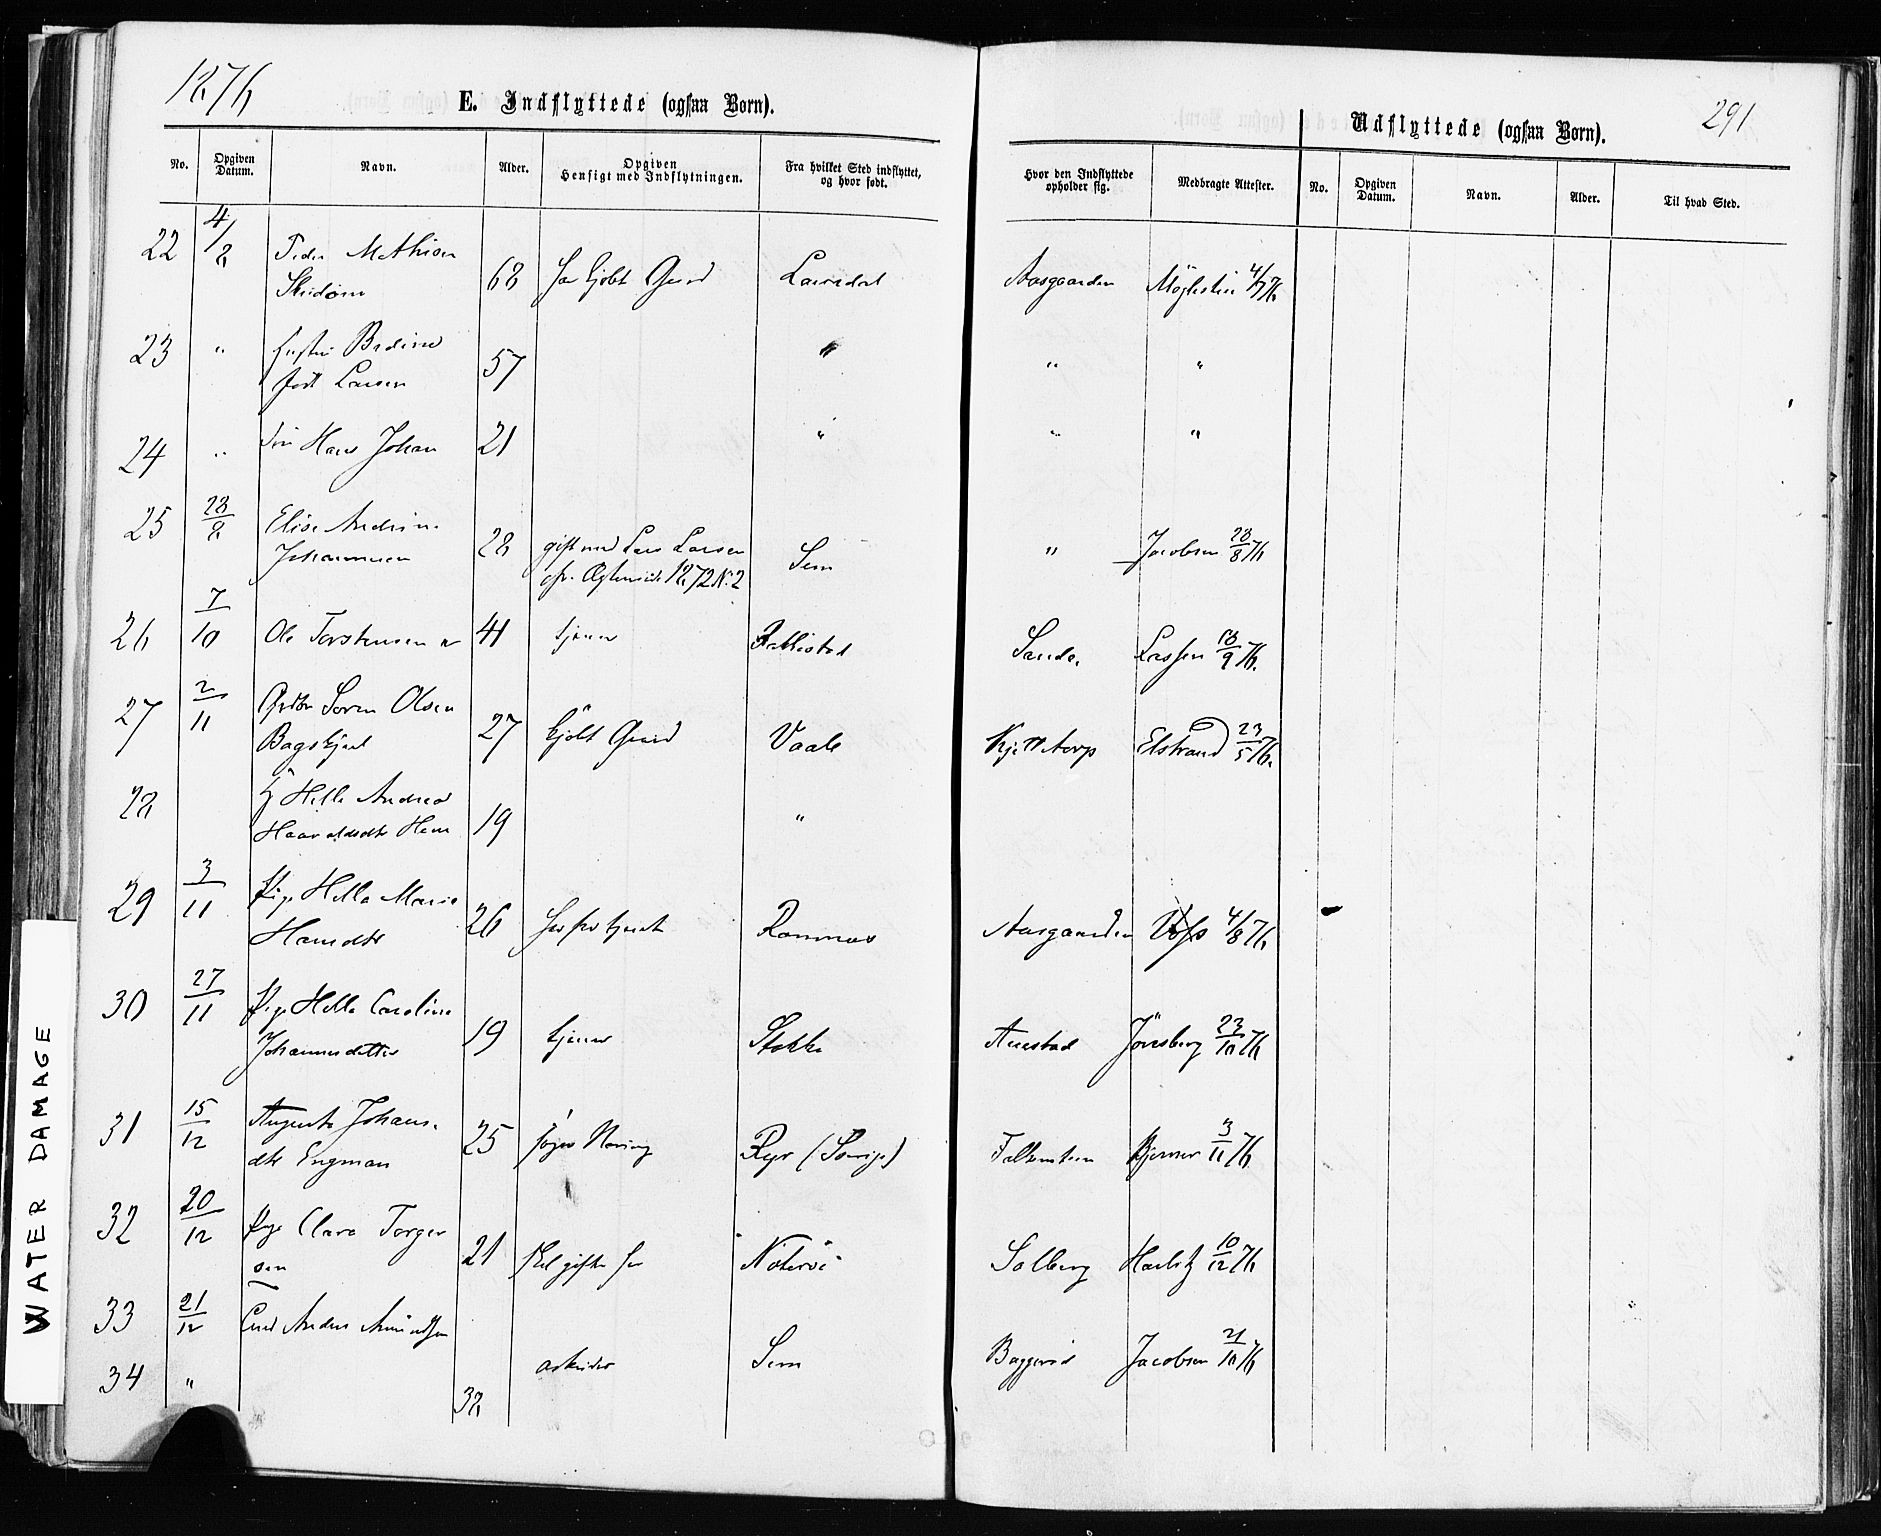 1876
E. Indflyttede (ogsaa Born).
Udflyttede (ogsaa Born).
291
No. Opgiven Datum. Navn. Alder. Opgiven Hensigt med Indflytningen. Fra hvilket Sted indflyttet, og hvor født. Hvor den Indflyttede opholder sig. Medbragte Attester. No. Opgiven Datum. Navn. Alder. Til hvad Sted.
22 4/8 Peder Mathisen
68 har kjøbt Gaard Laurdal Aasgaarden 4/7 76
23 " Hustru
født Larsen 57 " " "
24 " Søn Hans Johan 21 " " "
25 28/8 Elise Andrine
Johannesen 28 gift med Lars Larsen Sem " Jacobsen 28/8 76
1872 N. 2
26 7/10 Ole Torstensen 41 tjener Sande Lassen 18/9 76.
27 2/11 Søren Olsen
27 kjøbt Gaard Vaale Elstrand 23/5 76.
28 Helle Andrea
19 "
29 3/11 Pige Helle Marie
Hansdtr 26 Ramnæs Aasgaarden 4/8 76
30 27/11 Pige Helle Caroline
Johannesdatter 19 tjener Stokke Auestad 23/10 76
31 15/12 Augusta Johans-
dtr Engman 25 søger Næring (Sverige) Falkensten 3/11 76
32 20/12 Pige Clara Torger
sen 21 skal giftes her Nøterøe Solberg 10/12 76
33 21/12 Anders
34 " 38 arbeider Sem Jacobsen 21/10 76
WATER DAMAGE